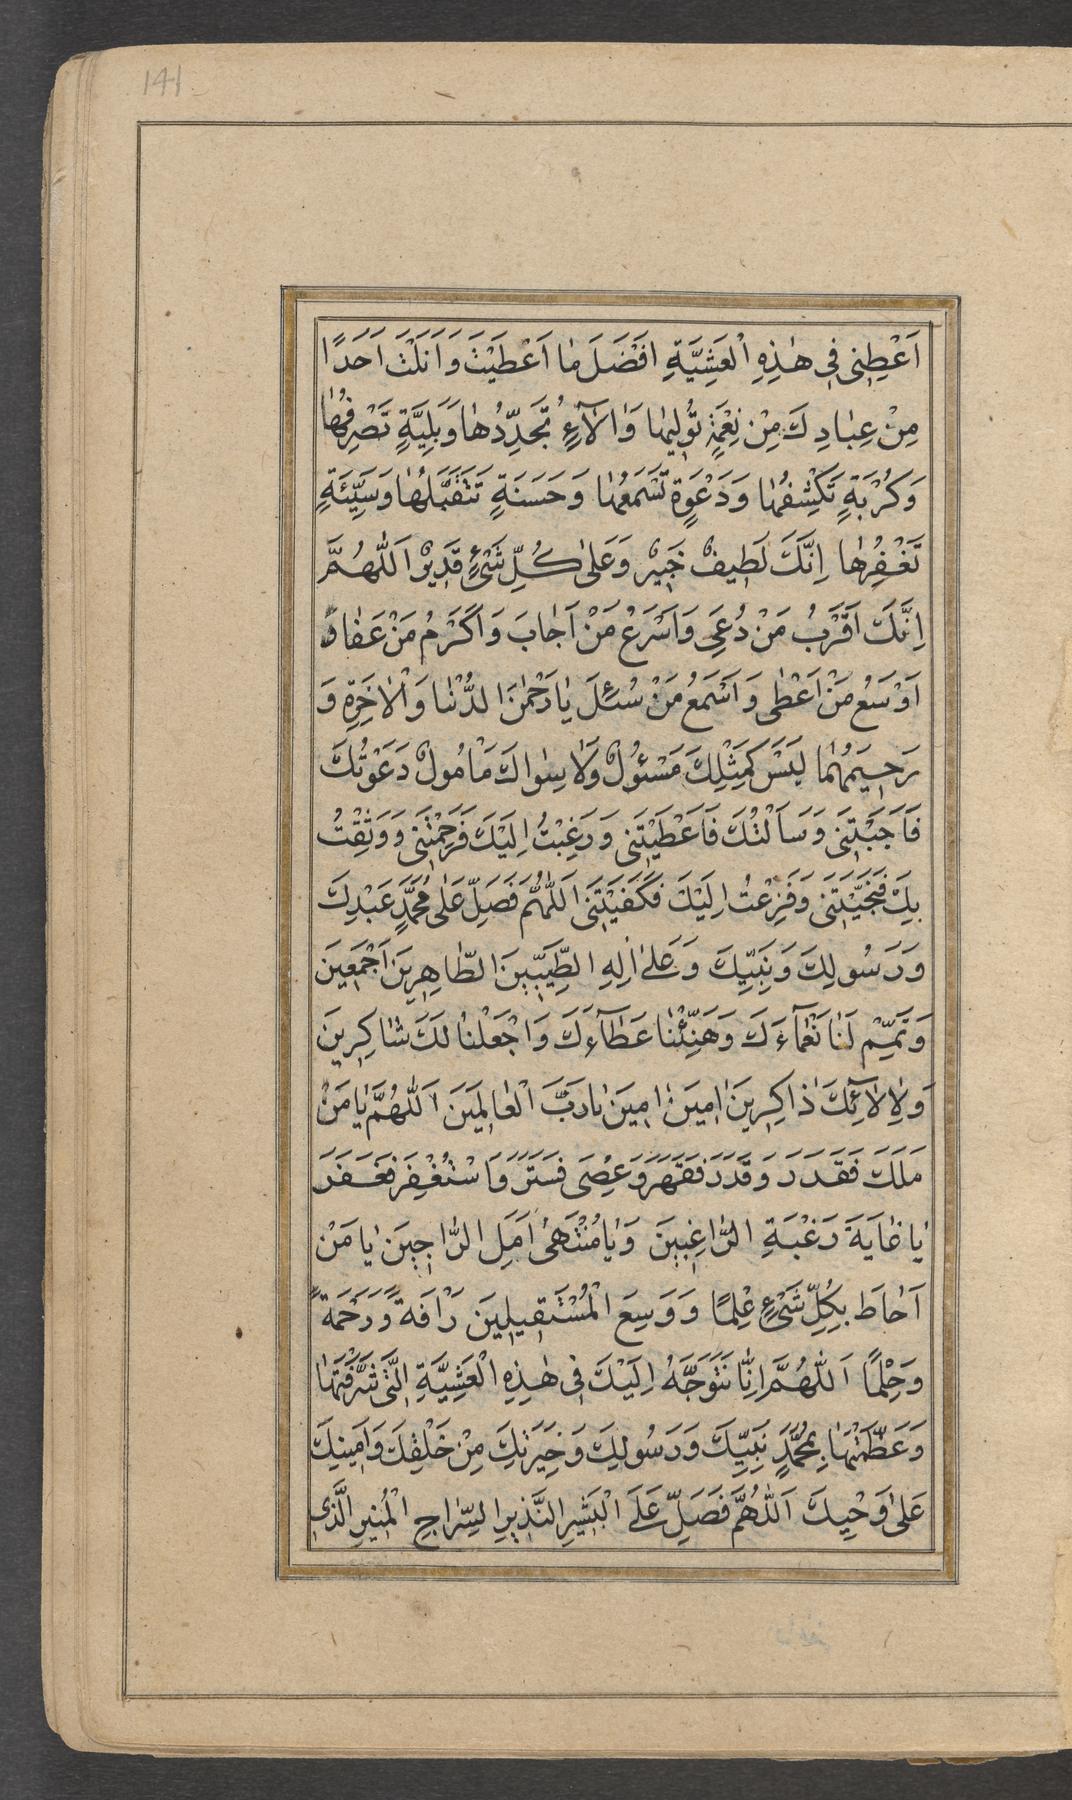 141
اَعْطِنِى فِى هٰذِهِ الْعَشِيَّةِ اَفْضَلَ مٰا اَعْطَيْتَ وَ اَنَلْتَ اَحَدًا
مِنْ عِبٰادِكَ مِنْ نِعْمَةٍ تُوْلِيهٰا وَ اٰلٰآءٍ تُجَدِّدُهٰا وَ بَلِيَّةٍ تَصْرِفُهٰا
وَ كُرْبَةٍ تَكْشِفُهٰا وَ دَعْوَةٍ تَسْمَعُهٰا وَ حَسَنَةٍ تَتَقَبَّلُهٰا وَ سَيِّئَةٍ
تَغْفِرُهٰا اِنَّكَ لَطِيفٌ خَبِيرٌ وَ عَلىٰ كُلِّ شَىْءٍ قَدِيرٌ اَللّٰهُمَّ
اِنَّكَ اَقْرَبُ مَنْ دُعِىَ وَ اَسْرَعُ مَنْ اَجٰابَ وَ اَكْرَمُ مَنْ عَفٰا وَ
اَوْسَعُ مَنْ اَعْطٰى وَ اَسْمَعُ مَنْ سُئِلَ يٰا رَحْمٰنَ الدُّنْيٰا وَ الْاٰخِرَةِ وَ
رَحِيمَهُمٰا لَيْسَ كَمِثْلِكَ مَسْئُولٌ وَ لٰا سِوٰاكَ مَاْمُولٌ دَعَوْتُكَ
فَاَجَبْتَنِى وَ سَاَلْتُكَ فَاَعْطَيْتَنِى وَ رَغِبْتُ اِلَيْكَ فَرَحِمْتَنِى وَ وَثِقْتُ
بِكَ فَنَجَّيْتَنِى وَ فَزِعْتُ اِلَيْكَ فَكَفَيْتَنِى اَللّٰهُمَّ فَصَلِّ عَلىٰ مُحَمَّدٍ عَبْدِكَ
وَ رَسُولِكَ وَ نَبِيِّكَ وَ عَلىٰ اٰلِهِ الطَّيِّبِينَ الطّٰاهِرِينَ اَجْمَعِينَ
وَ تَمِّمْ لَنٰا نَعْمٰآءَكَ وَ هَنِّئْنٰا عَطٰآءَكَ وَ اجْعَلْنٰا لَكَ شٰاكِرِينَ
وَ لِاٰلٰآئِكَ ذٰاكِرِينَ اٰمِينَ اٰمِينَ يٰا رَبَّ الْعٰالَمِينَ اَللّٰهُمَّ يٰا مَنْ
مَلَكَ فَقَدَرَ وَ قَدَرَ فَقَهَرَ وَ عُصِىَ فَسَتَرَ وَ اسْتُغْفِرَ فَغَفَرَ
يٰا غٰايَةَ رَغْبَةِ الرّٰاغِبِينَ وَ يٰا مُنْتَهىٰ اَمَلِ الرّٰاجِينَ يٰا مَنْ
اَحٰاطَ بِكُلِّ شَىْءٍ عِلْمًا وَ وَسِعَ الْمُسْتَقِيلِينَ رَاْفَةً وَ رَحْمَةً
وَ حِلْمًا اَللّٰهُمَّ اِنّٰا نَتَوَجَّهُ اِلَيْكَ فِى هٰذِهِ الْعَشِيَّةِ الَّتِى شَرَّفْتَهٰا
وَ عَظَّمْتَهٰا بِمُحَمَّدٍ نَبِيِّكَ وَ رَسُولِكَ وَ خِيَرَتِكَ مِنْ خَلْقِكَ وَ اَمِينِكَ
عَلىٰ وَحْيِكَ اَللّٰهُمَّ فَصَلِّ عَلَى الْبَشِيرِ النَّذِيرِ السِّرٰاجِ الْمُنِيرِ الَّذِى